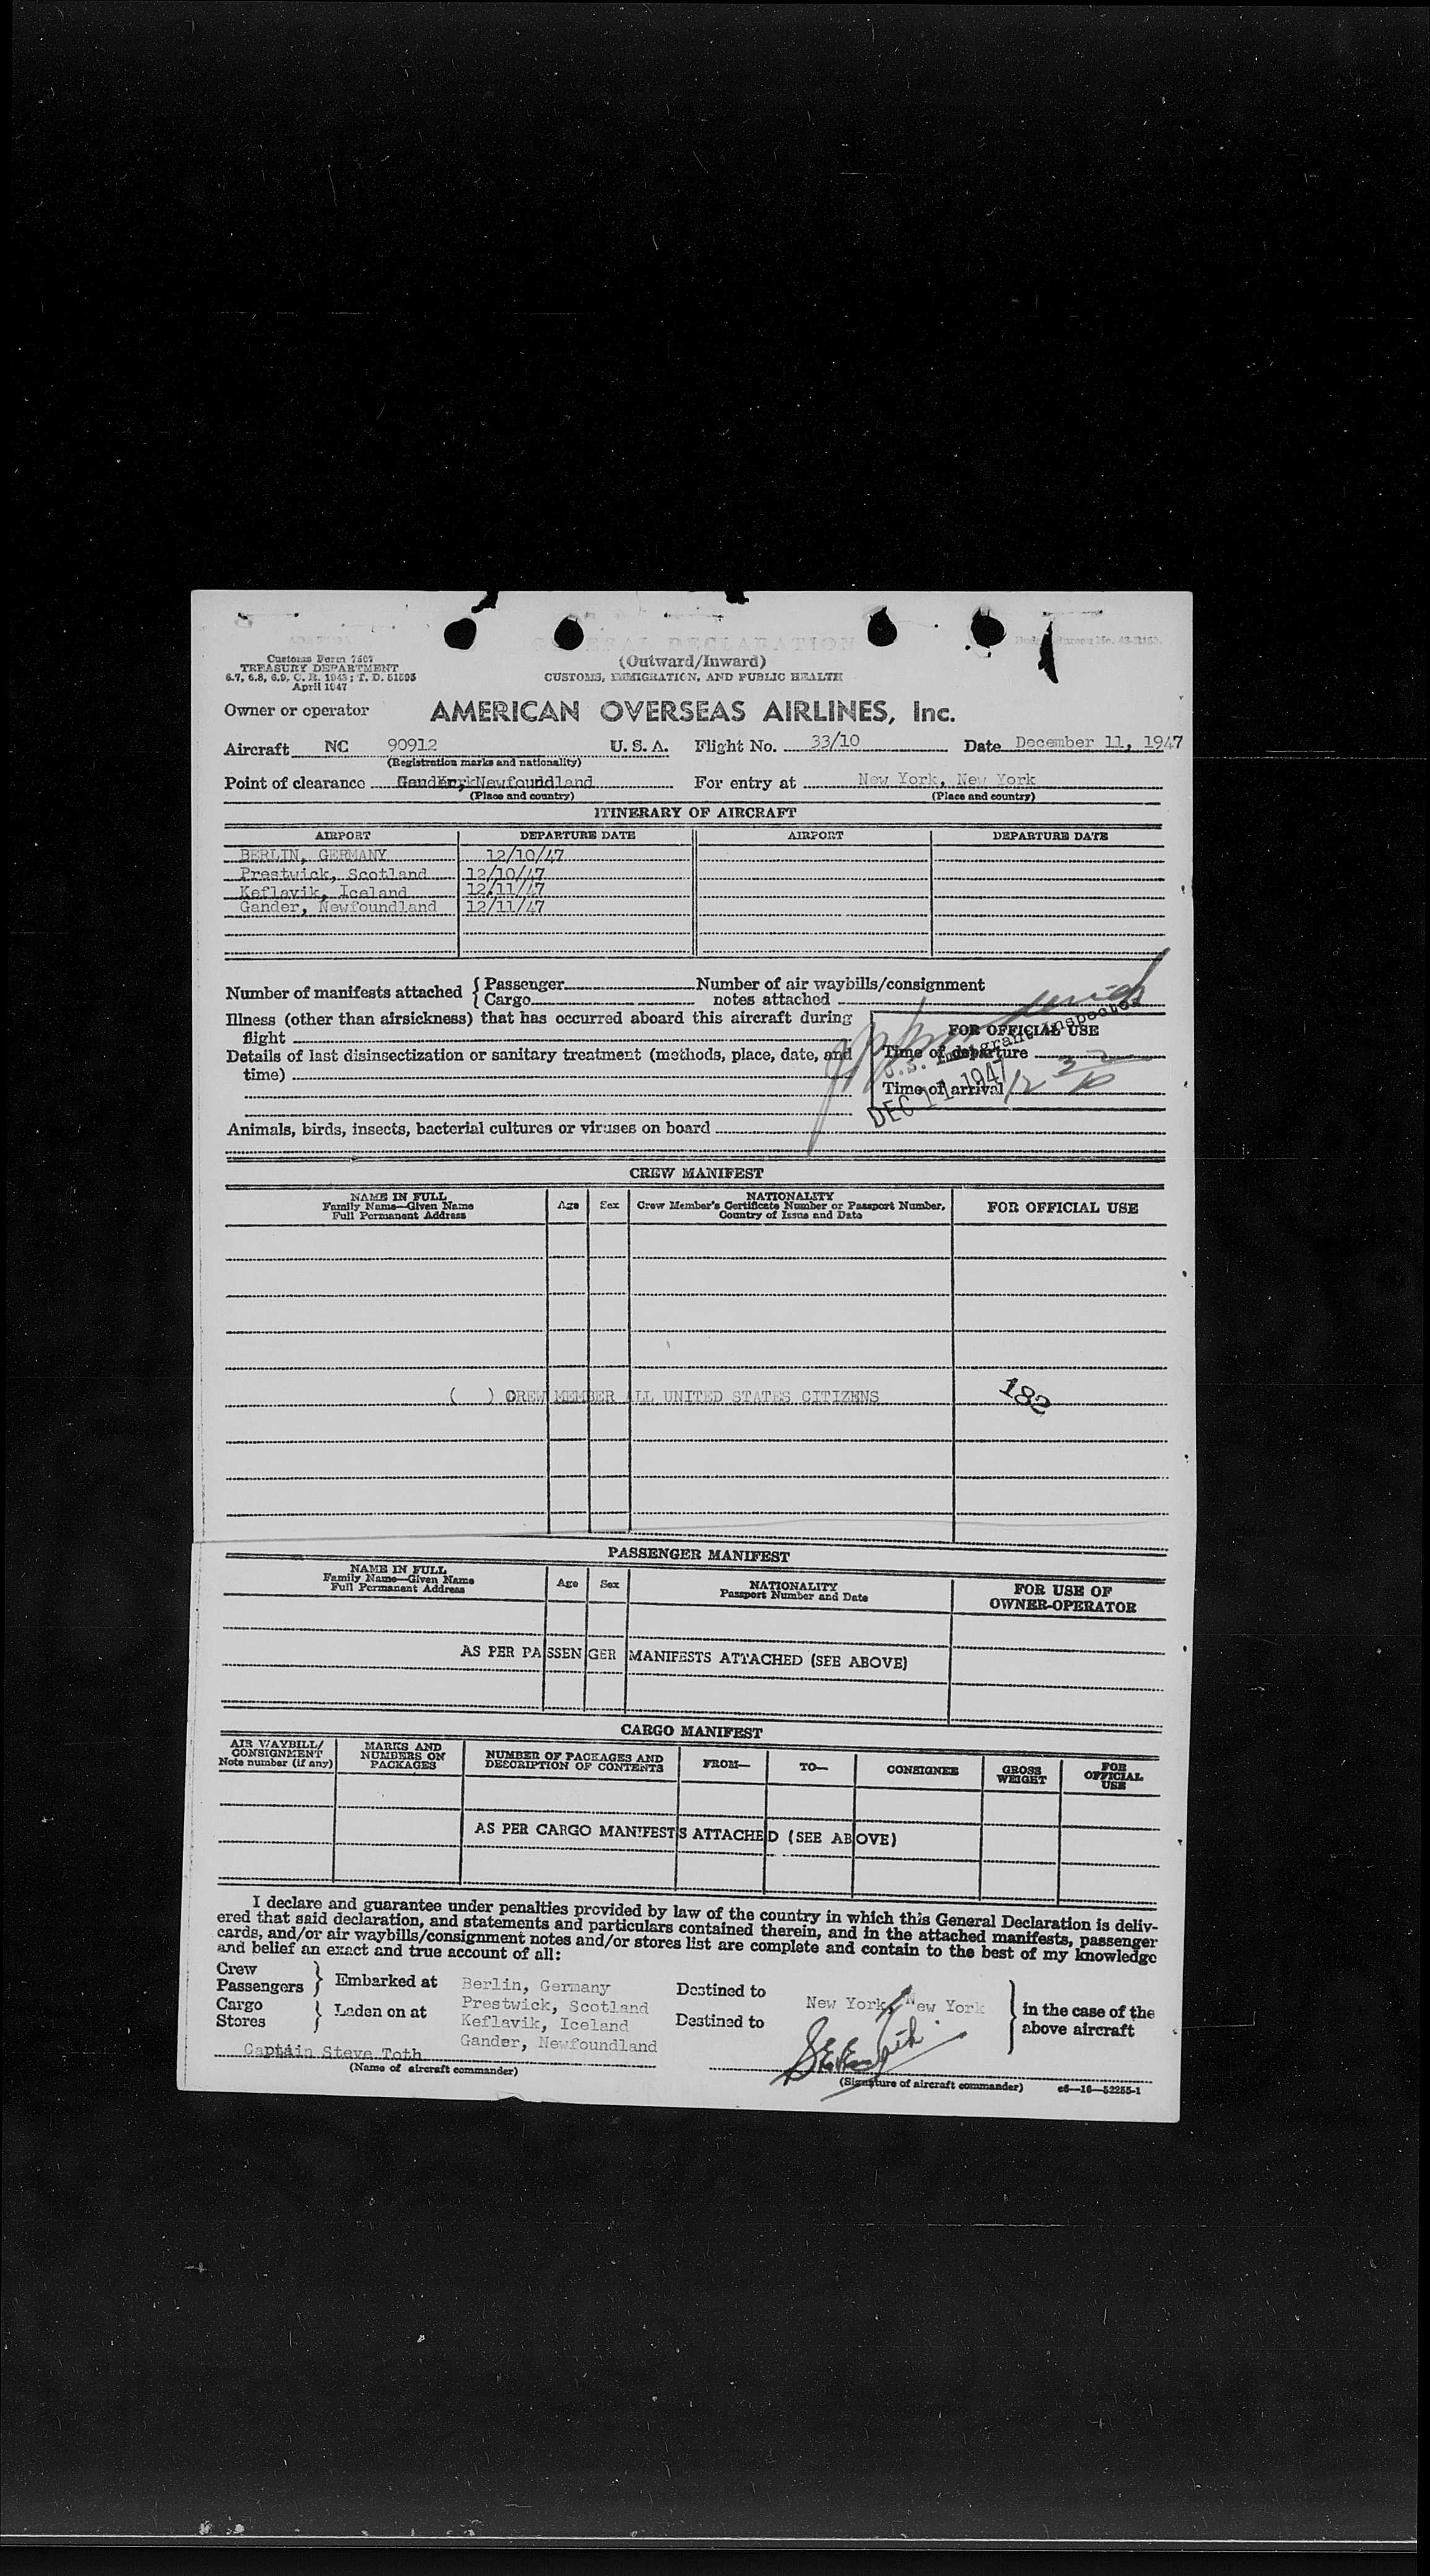 GENERAL DECLARATION
(Outward/Inward)
CUSTOMS, IMMIGRATION, AND PUBLIC HEALTH
Customs Form 7507
TREASURY DEPARTMENT
6.7, 6.8, 6.9, C. R. 1943; T. D. 51595
April 1947
Owner or operator AMERICAN OVERSEAS AIRLINES, Inc.
Aircraft NC 90912 U. S. A. Flight No. 33/10 Date December 11, 1947
(Registration marks and nationality)
Point of clearance Gander, Newfoundland For entry at New York, New York
(Place and country) (Place and country)
ITINERARY OF AIRCRAFT
AIRPORT DEPARTURE DATE AIRPORT DEPARTURE DATE
BERLIN, GERMANY 12/10/47
Prestwick, Scotland 12/10/47
Keflavik, Iceland 12/11/47
Gander, Newfoundland 12/11/47
Number of manifests attached { Passenger Number of air waybills/consignment
Cargo notes attached
Illness (other than airsickness) that has occurred aboard this aircraft during
flight
Details of last disinsectization or sanitary treatment (methods, place, date, and
time)
FOR OFFICIAL USE
Time of departure
Time of arrival 12
U.S. Immigrant Inspector
DEC 11 1947
Animals, birds, insects, bacterial cultures or viruses on board
CREW MANIFEST
NAME IN FULL
Family Name—Given Name
Full Permanent Address
Age Sex
NATIONALITY
Crew Member's Certificate Number or Passport Number,
Country of Issue and Date
FOR OFFICIAL USE
( ) CREW MEMBER ALL UNITED STATES CITIZENS 182
PASSENGER MANIFEST
NAME IN FULL
Family Name—Given Name
Full Permanent Address
Age Sex
NATIONALITY
Passport Number and Date
FOR USE OF
OWNER-OPERATOR
AS PER PASSENGER MANIFESTS ATTACHED (SEE ABOVE)
CARGO MANIFEST
AIR WAYBILL/
CONSIGNMENT
Note number (if any)
MARKS AND
NUMBERS ON
PACKAGES
NUMBER OF PACKAGES AND
DESCRIPTION OF CONTENTS
FROM— TO— CONSIGNEE
GROSS
WEIGHT
FOR
OFFICIAL
USE
AS PER CARGO MANIFESTS ATTACHED (SEE ABOVE)
I declare and guarantee under penalties provided by law of the country in which this General Declaration is deliv-
ered that said declaration, and statements and particulars contained therein, and in the attached manifests, passenger
cards, and/or air waybills/consignment notes and/or stores list are complete and contain to the best of my knowledge
and belief an exact and true account of all:
Crew
Passengers } Embarked at
Cargo
Stores } Laden on at
Berlin, Germany
Prestwick, Scotland
Keflavik, Iceland
Gander, Newfoundland
Destined to
Destined to
New York, New York
} in the case of the
above aircraft
Captain Steve Toth
(Name of aircraft commander)
(Signature of aircraft commander) c6—16—52255-1